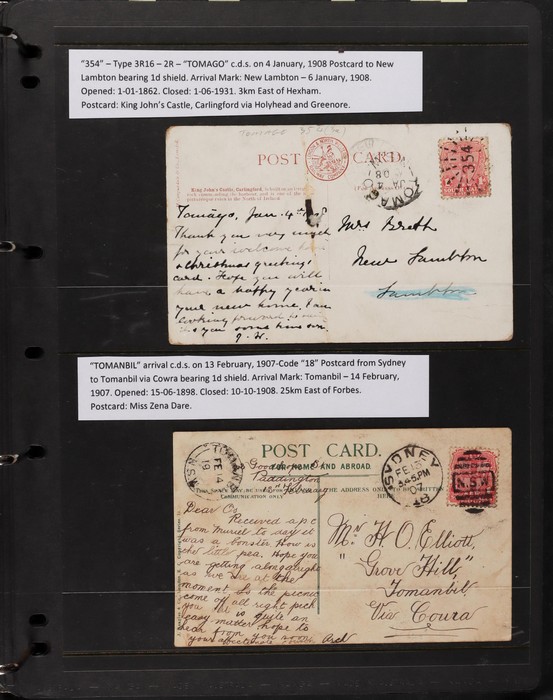 “354” – Type 3R16 – 2R – “TOMAGO” c.d.s. on 4 January, 1908 Postcard to New
Lambton bearing 1d shield. Arrival Mark: New Lambton – 6 January, 1908.
Opened: 1-01-1862. Closed: 1-06-1931. 3km East of Hexham.
Postcard: King John’s Castle, Carlingford via Holyhead and Greenore.
TOMAGO 354
POST CARD.
King John's Castle, Carlingford.
TOMAGO
JA 4
08
354
Tomago, Jan. 4th 08
Thank you very much
for your welcome
& Christmas greeting
card. Hope you will
have a happy year in
your new home. I am
looking forward to
you some time soon
Mrs Brett
New Lambton
Lambton
“TOMANBIL” arrival c.d.s. on 13 February, 1907-Code “18” Postcard from Sydney
to Tomanbil via Cowra bearing 1d shield. Arrival Mark: Tomanbil – 14 February,
1907. Opened: 15-06-1898. Closed: 10-10-1908. 25km East of Forbes.
Postcard: Miss Zena Dare.
POST CARD.
FOR HOME AND ABROAD.
COMMUNICATION ONLY
THE ADDRESS ONLY
FE 14
N.S.W
SYDNEY
FE 13
3-45 PM
07
18
N.S.W
Paddington
13 February
Dear
Received a p.c
from Muriel to say it
was a bonster. How is
the little pea. Hope you
are getting along alright
as we are at the
moment. Is the picnic
come off all right
easy matter hope to
hear from you soon
Your affectionate
Mr H. O. Elliott,
" Grove Hill,"
Tomanbil,
Via Coura